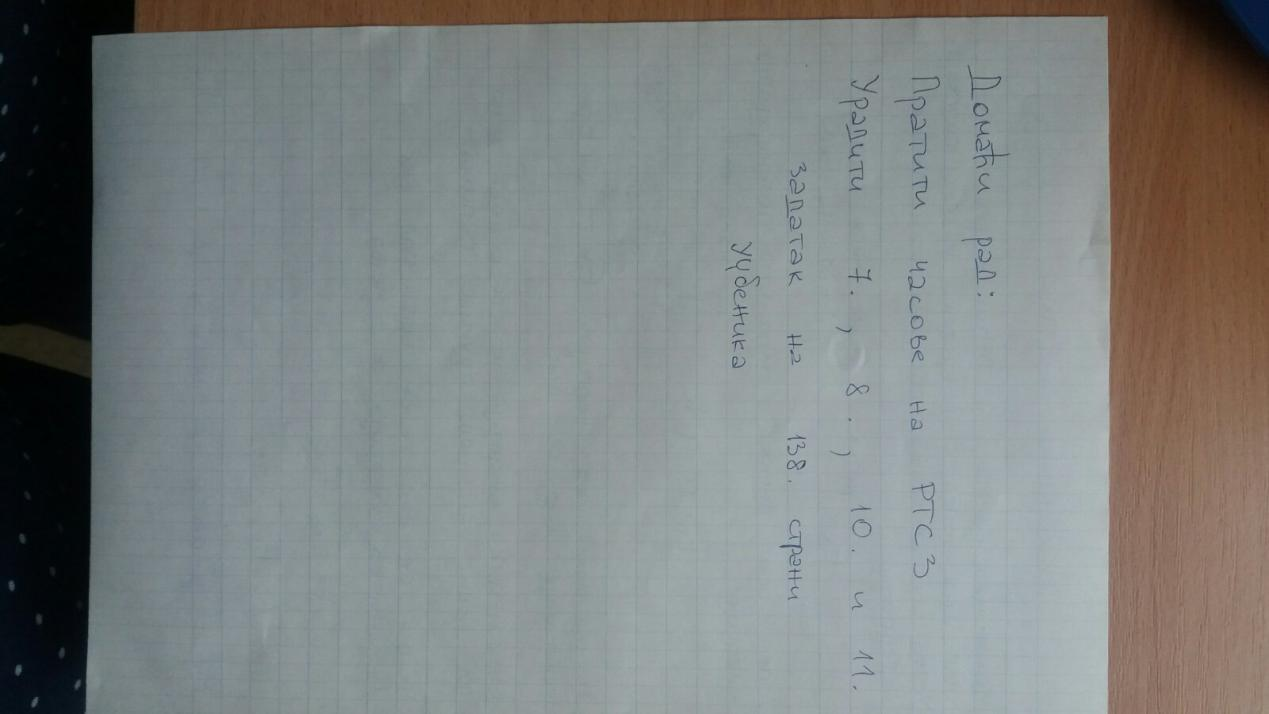 Домаћи рад:
Пратити часове на РТС 3
Урадити 7., 8., 10. и 11.
задатак на 138. страни
уџбеника